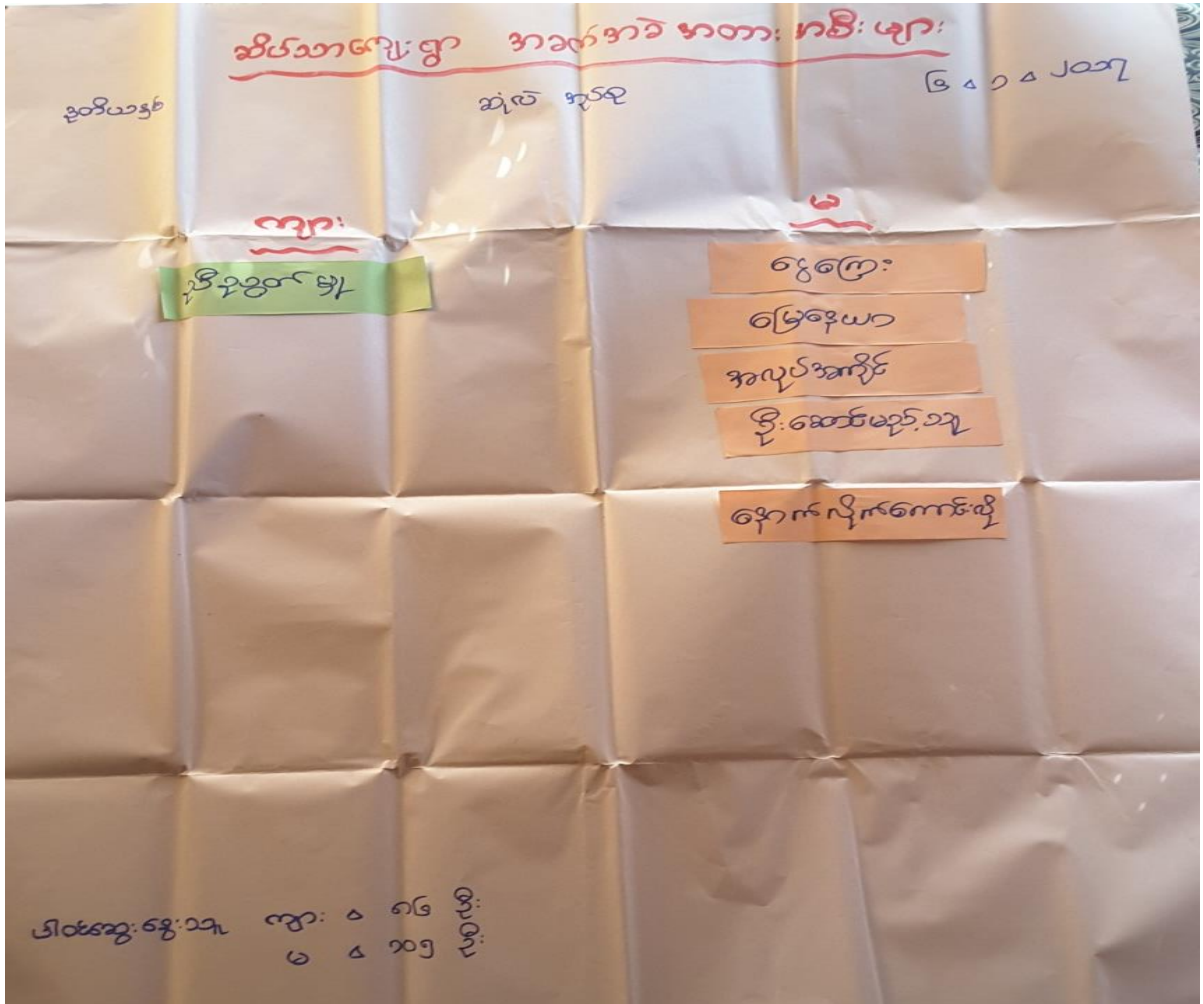 ဆိပ်သာကျေးရွာ အခက်အခဲ အတားအစီးများ
ဒုတိယနှစ် ဆုံလဲ အုပ်စု ၆ ၊ ၁ ၊ ၂၀၁၇
ကျား မ
ညီညွတ်မှု
ငွေကြေး
မြေနေယာ
အလုပ်အကိုင်
ဦးဆောင်မည့်သူ
နောက်လိုက်ကောင်းလို
ပါဝင်ဆွေးနွေးသူ ကျား ၊ ၈၆ ဦး
မ ၊ ၁၀၅ ဦး